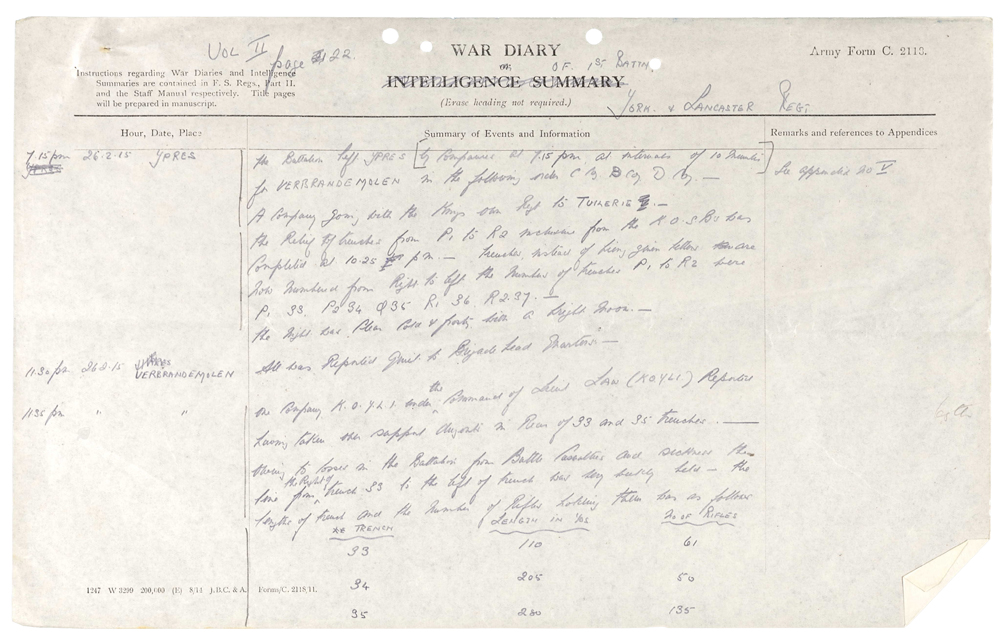 VOL II
page 22.
WAR DIARY
or
OF 1st Battn.
INTELLIGENCE SUMMARY
(Erase heading not required.)
York. & Lancaster Regt.
Army Form C. 2118.
Instructions regarding War Diaries and Intelligence
Summaries are contained in F. S. Regs., Part II.
and the Staff Manual respectively. Title pages
will be prepared in manuscript.
Hour, Date, Place
Summary of Events and Information
Remarks and references to Appendices
7.15 pm 26.2.15 YPRES
the Battalion left YPRES [by Companies at 7.15 pm at intervals of 10 minutes]
See appendix no V
for VERBRANDEMOLEN in the following order C Coy. B Coy D Coy. —
A Company going with the Kings own Regt to TUILERIE. —
the Relief of trenches from P1 to R2 inclusive from the K.O.S.B's was
Completed at 10.25 pm. — trenches instead of being given letters are
now numbered from Right to left the number of trenches P1 to R2 were
P1 33 P2 34 Q 35 R1 36 R2.37. —
the night was Clear Cold & frosty with a bright moon —
11.30 pm 26.2.15 VERBRANDEMOLEN
All was Reported Quiet to Brigade Head Quarters —
11.35 pm " "
one Company K.O.Y.L.I. under the Command of Lieut Law (K.O.Y.L.I.) Reported
having taken over support dugouts in Rear of 33 and 35 trenches. —
Owing to losses in the Battalion from Battle Casualties and sickness the
line from the Right of trench 33 to the left of trench was very held — the
lengths of trench and the number of Rifles holding them was as follows
No TRENCH
LENGTH IN yds
No OF RIFLES
33 110 61
34 205 50
35 230 135
1247 W 3299 200,000 (E) 8/14 J.B.C. & A. Forms/C. 2118/11.